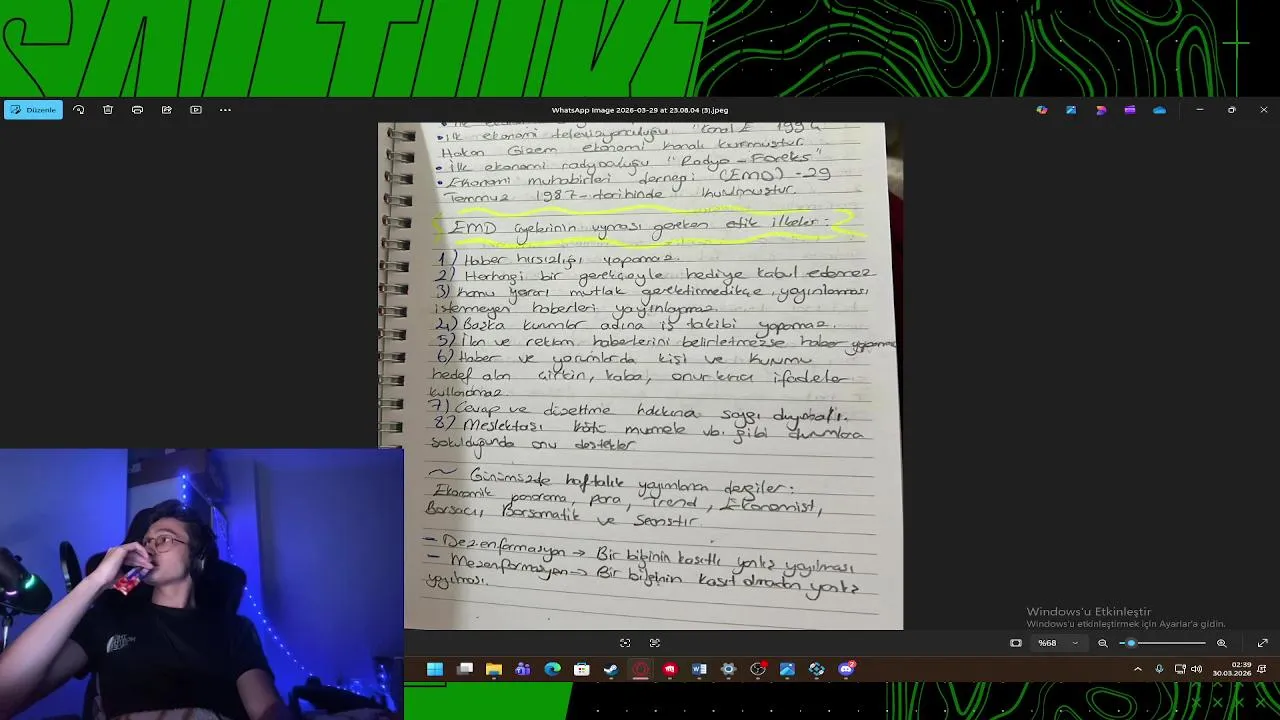 Düzenle
WhatsApp Image 2026-03-29 at 23.08.04 (3).jpeg
• ilk ekonomi televizyonculuğu "Kanal E 1994
Hakan Gizem ekonomi kanalı kurmuştur.
• ilk ekonomi radyoculuğu "Radyo - Foreks"
• Ekonomi muhabirleri derneği (EMD) - 29
Temmuz 1987 - tarihinde kurulmuştur.
EMD üyelerinin uyması gereken etik ilkeler:
1) Haber hırsızlığı yapamaz.
2) Herhangi bir gerekçeyle hediye kabul edemez
3) Kamu yararı mutlak gerektirmedikçe, yayınlaması
istemeyen haberleri yayınlayamaz.
4) Başka kurumlar adına iş takibi yapamaz.
5) İlan ve reklam haberlerini belirletmezse haber yapamaz
6) Haber ve yorumlarda kişi ve kurumu
hedef alan çirkin, kaba, onur kırıcı ifadeler
kullanamaz.
7) Cevap ve düzeltme hakkına saygı duymalı.
8) Meslektaşı kötü muamele vb. gibi durumlara
sokulduğunda onu destekler
~ Günümüzde haftalık yayımlanan dergiler:
Ekonomik panorama, para, Trend, Ekonomist,
Borsacı, Borsamatik ve Seanstır.
- Dezenformasyon → Bir bilginin kasıtlı yanlış yayılması
- Mezenformasyon → Bir bilginin kasıt olmadan yanlış
yayılması.
Windows'u Etkinleştir
Windows'u etkinleştirmek için Ayarlar'a gidin.
%68
02:39
30.03.2026